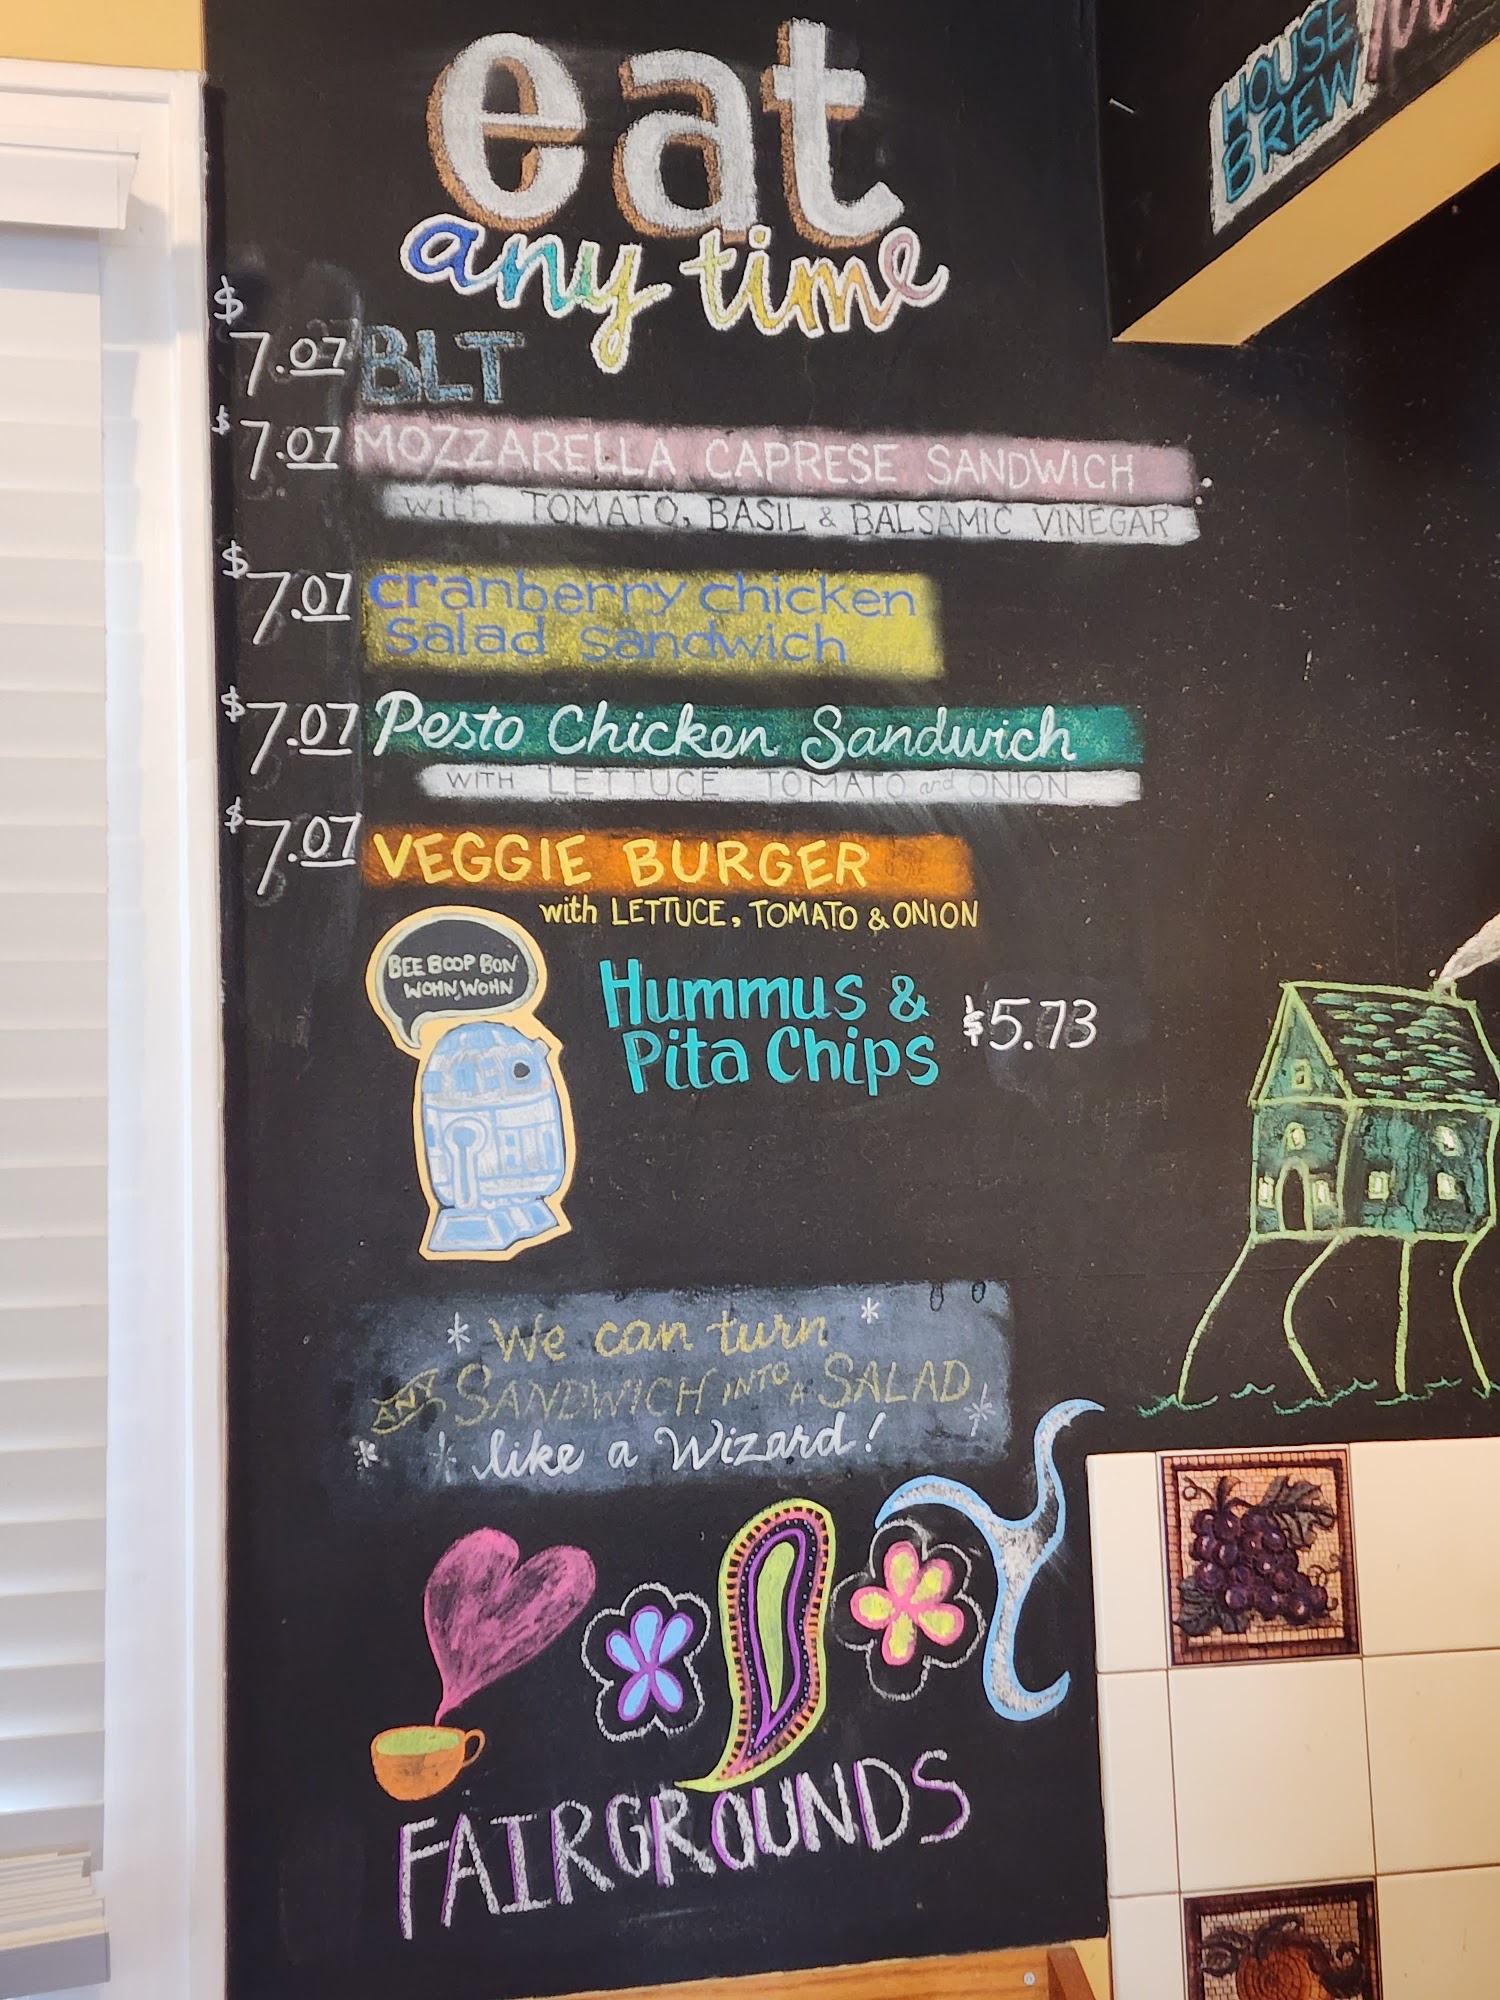 eat
any time
$7.07 BLT
$7.07 MOZZARELLA CAPRESE SANDWICH
with TOMATO, BASIL & BALSAMIC VINEGAR
$7.07 cranberry chicken
salad sandwich
$7.07 Pesto Chicken Sandwich
WITH LETTUCE TOMATO and ONION
$7.07 VEGGIE BURGER
with LETTUCE, TOMATO & ONION
BEE BOOP BON
WOHN, WOHN
Hummus &
Pita Chips $5.73
*We can turn*
ANY SANDWICH INTO A SALAD
* * like a Wizard! *
FAIRGROUNDS
HOUSE
BREW